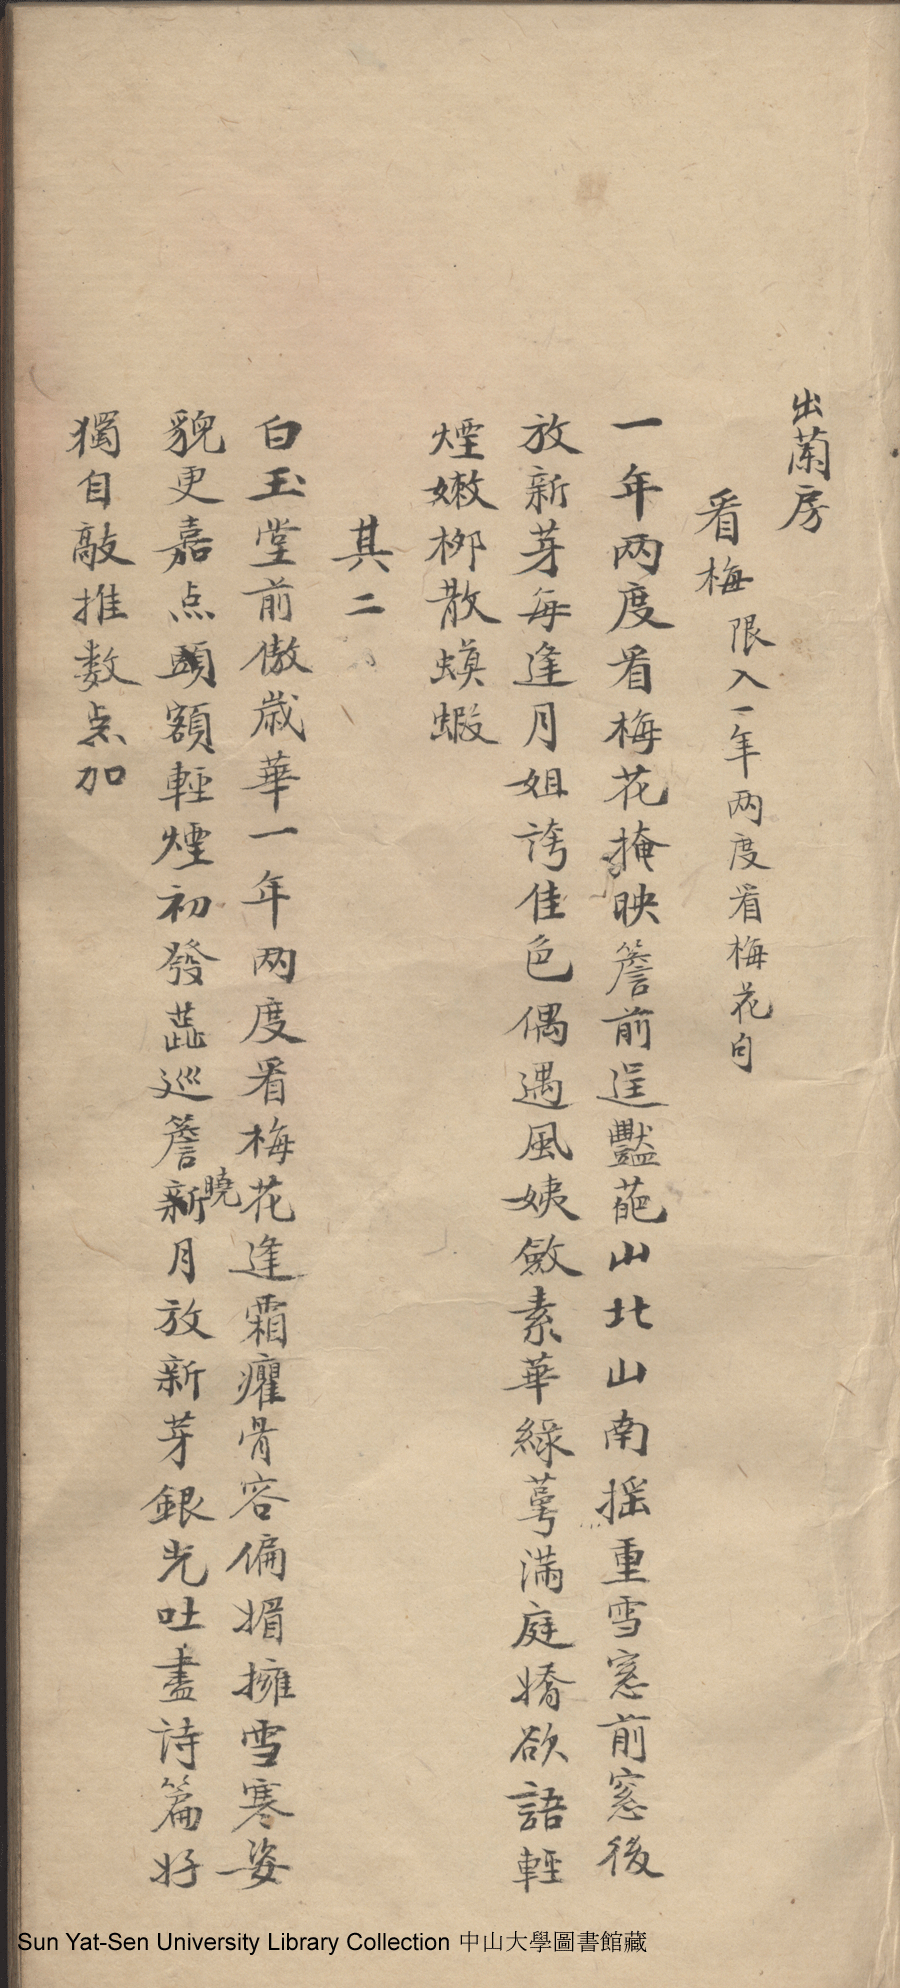 出蘭房
看梅 限入一年两度看梅花句
一年两度看梅花掩映簷前逞豔葩山北山南摇重雪窓前窓後
放新芽每逢月姐誇佳色偶遇風姨斂素華綠萼满庭嬌欲語輕
煙嫩栁散蟆蝦
其二
白玉堂前傲歲華一年两度看梅花逢霜癯骨容偏媚擁雪寒姿
貌更嘉点頭額輕煙初發蕋巡簷新曉月放新芽銀光吐盡詩篇好
獨自敲推數点加
Sun Yat-Sen University Library Collection 中山大學圖書館藏